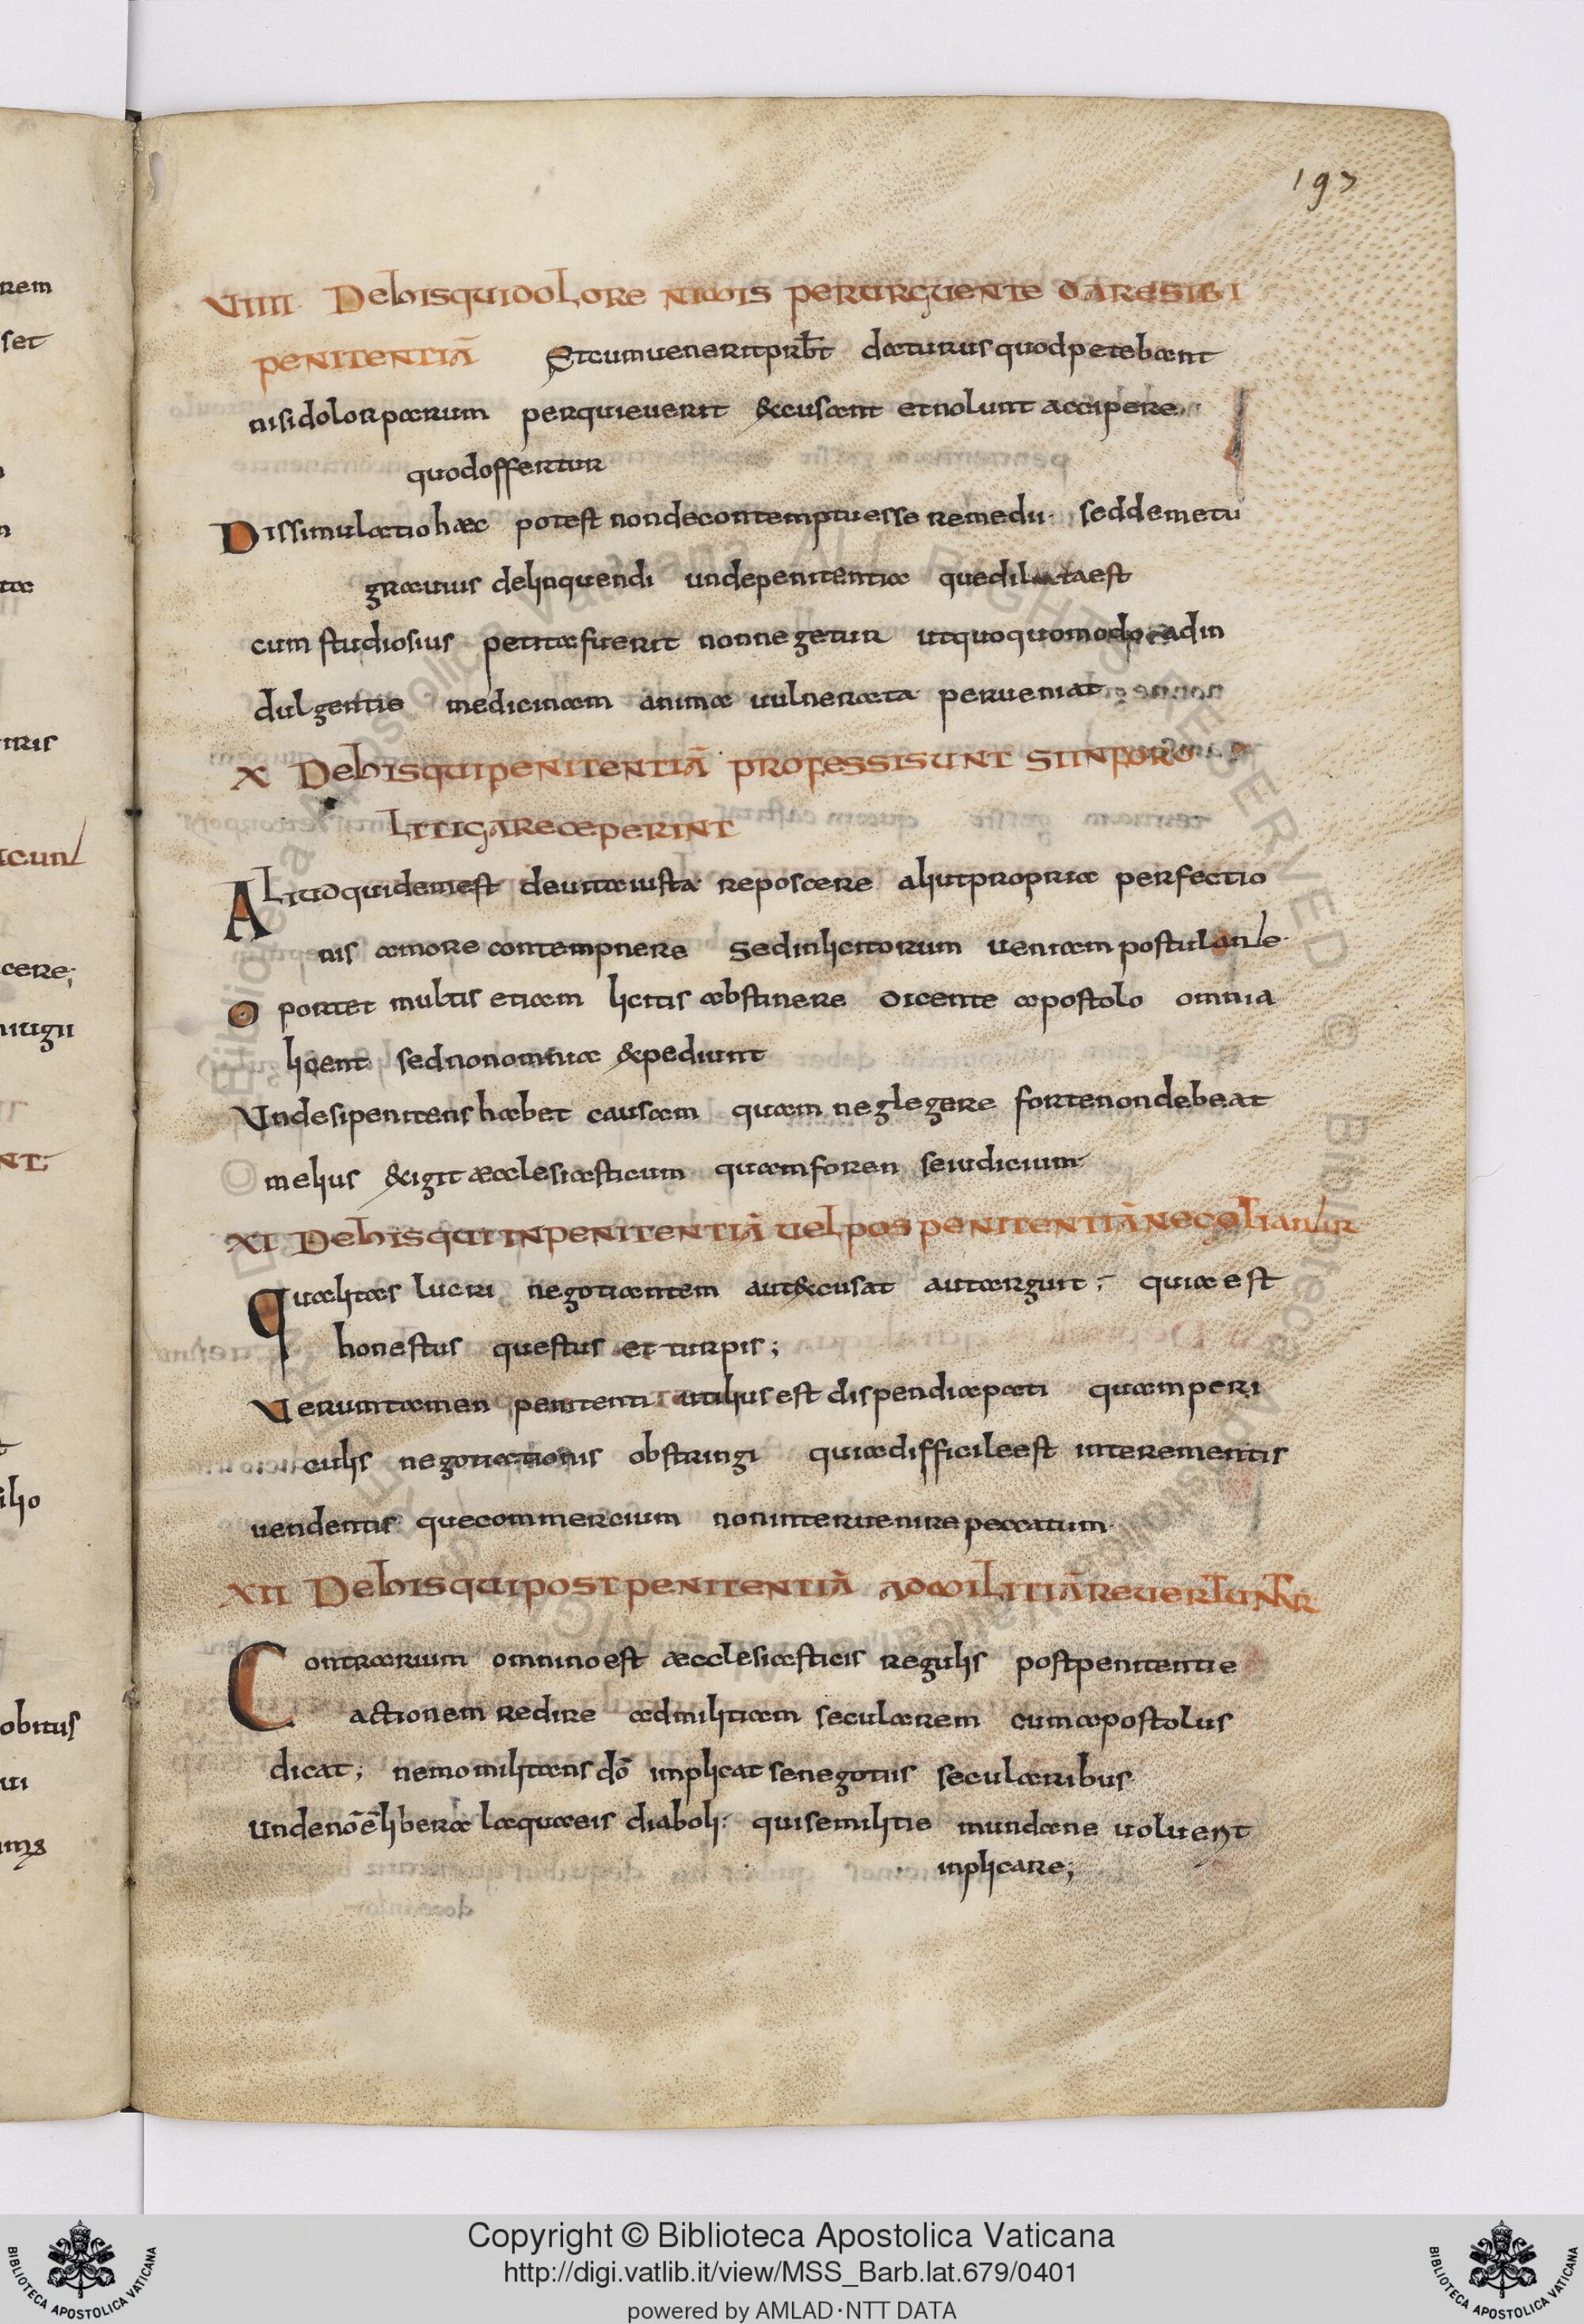 197
VIIII De his qui dolore nimis perurguente dare sibi
penitentiā Et cum uenerit prƀt daturus quod petebant
nisi dolor parum perquieuerit excusant et nolunt accipere
quod offertur
Dissimulatio haec potest non de contemptu esse remedii sed de metu
grauius delinquendi unde penitentia que dilata est
cum studiosius petita fuerit non negetur ut quoquomodo ad in
dulgentie medicinam anima uulnerata perueniat
X De his qui penitentiā professi sunt si in foro
litigare ceperint
Aliud quidem est deuita iusta reposcere aliut propriae perfectio
nis amore contempnere sed inlicitorum ueniam postulante
Oportet multis etiam licitis abstinere dicente apostolo omnia
licent sed non omnia expediunt
Unde si penitens habet causam quam neglegere forte non debeat
melius exigit aecclesiasticum quam foren se iudicium
XI De his qui in penitentiā uel pos penitentiā negotiantur
Qualitas lucri negotiantem aut excusat aut arguit; quia est
honestus questus et turpis;
Ueruntamen penitenti utilius est dispendia pati quam peri
culis negotiationis obstringi quia difficile est inter ementis
uendentis que commercium non interuenire peccatum
XII De his qui post penitentiā ad militiā reuertuntr
Contrarium omnino est aecclesiasticis regulis post penitentie
actionem redire ad militiam secularem cum apostolus
dicat; nemo militans dō implicat se negotiis secularibus
Unde nō ē liber a laqueis diaboli; qui se militie mundane uoluent
inplicare;
rem
set
cere;
obitus
Copyright © Biblioteca Apostolica Vaticana
http://digi.vatlib.it/view/MSS_Barb.lat.679/0401
powered by AMLAD·NTT DATA
BIBLIOTECA APOSTOLICA VATICANA
BIBLIOTECA APOSTOLICA VATICANA